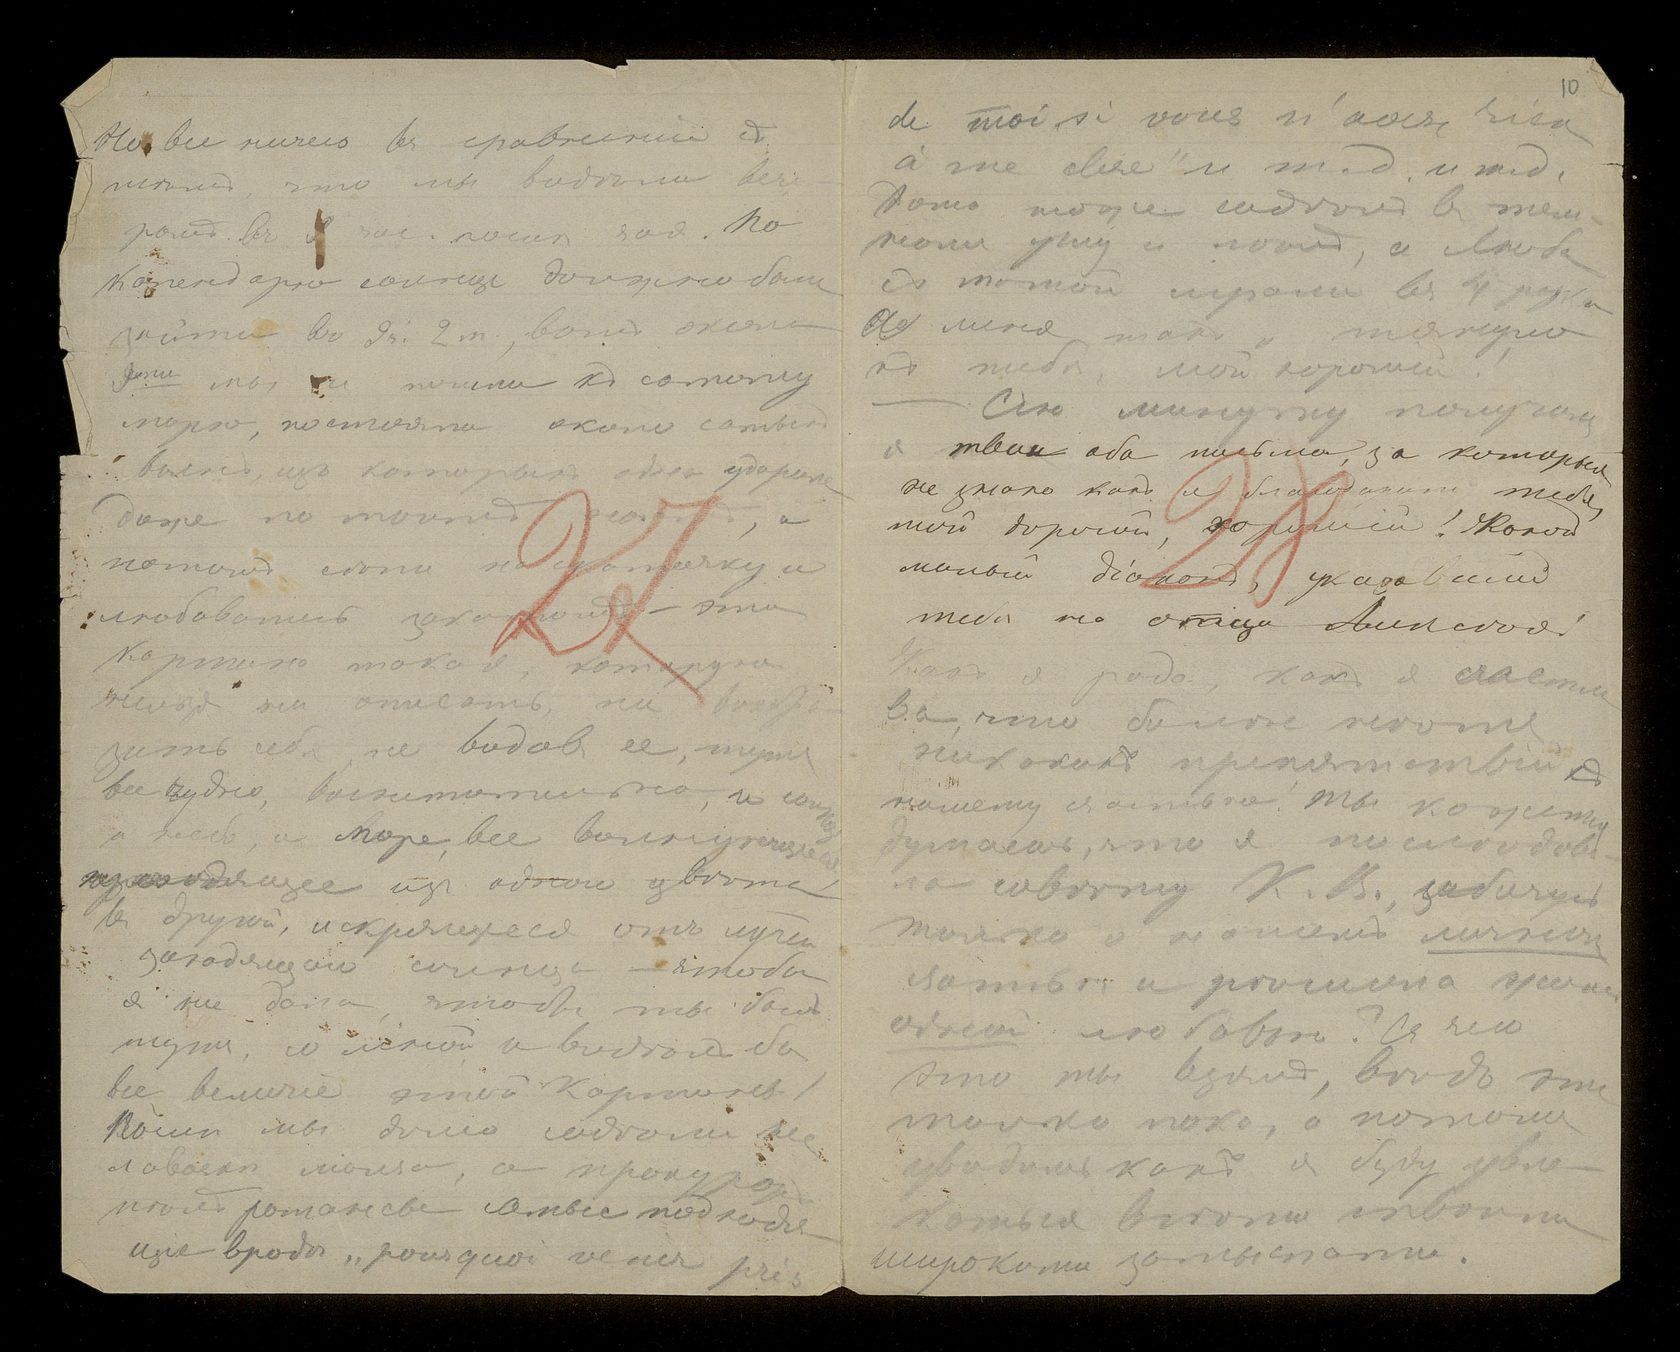 Но все ничего въ сравненіи съ
тѣмъ, что мы видѣли вече-
ромъ въ 8 час. послѣ чая. По
календарю солнце должно было
зайти въ 8 ч. 2 м., вотъ около
8ми мы и пошли къ самому
морю, постояли около самыхъ
волнъ, изъ которыхъ одна ударила
даже по моимъ ногамъ, а
потомъ сѣли на скамеечку и
любовались закатомъ — эта
картина такая, которую
нельзя ни описать, ни вообра-
зить себѣ, не видавъ ее, тутъ
все чудно, восхитительно, и солнце
и небо, и море, все волнующееся
переходящее изъ одного цвѣта
въ другой, искрящееся отъ лучей
заходящаго солнца — чтобы
я не дала, чтобы ты былъ
тутъ, со мной и видѣлъ бы
все величіе этой картины!
Послѣ мы долго сидѣли не
лавочкѣ молча, а прокуроръ
пѣлъ романсы самые подходя-
щіе вродѣ „pourquoi venir près
10
de moi si vous n'avez rien
à me dire" и т. д. и т. д.
Папа тоже сидѣлъ въ тем-
номъ углу и пѣлъ, а Люба
съ мамой играли въ 4 руки
А меня такъ и тянуло
къ тебѣ, мой хорошій!
— Сію минутку получила
я твои оба письма, за которыя
не знаю какъ и благодарить тебя,
мой дорогой, хорошій! Какой
милый діаконъ, указавшій
тебѣ на отца Алексѣя!
Какъ я рада, какъ я счастли-
ва, что больше нѣтъ
никакихъ препятствій къ
нашему счастью! Ты кажется
думаешь, что я послѣдова-
ла совѣту К. В., забочусь
только о нашемъ личномъ
счастьи и рѣшила жить
одной любовью? Съ чего
это ты взялъ, вѣдь это
только пока, а потомъ
увидишь какъ я буду увле-
каться всѣми твоими
широкими замыслами.
27
28